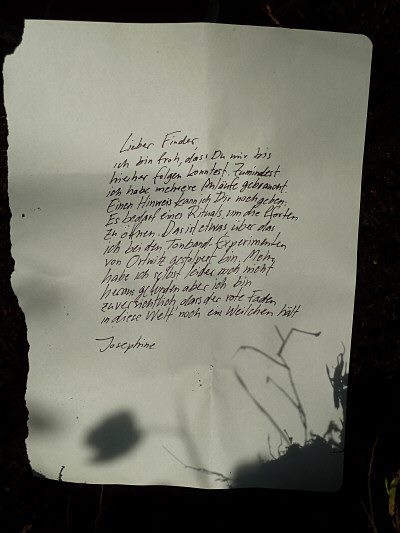 Lieber Finder,
ich bin froh, dass Du mir bis
hierher folgen konntest. Zumindest
ich habe mehrere Anläufe gebraucht.
Einen Hinweis kann ich Dir noch geben:
Es bedarf eines Rituals, um die Pforten
zu öffnen. Das ist etwas über das
ich bei den Tonband Experimenten
von Ortwitz gestolpert bin. Mehr
habe ich selbst leider noch nicht
heraus gefunden aber ich bin
zuversichtlich dass der rote Faden
in diese Welt noch ein Weilchen hält
Josephine